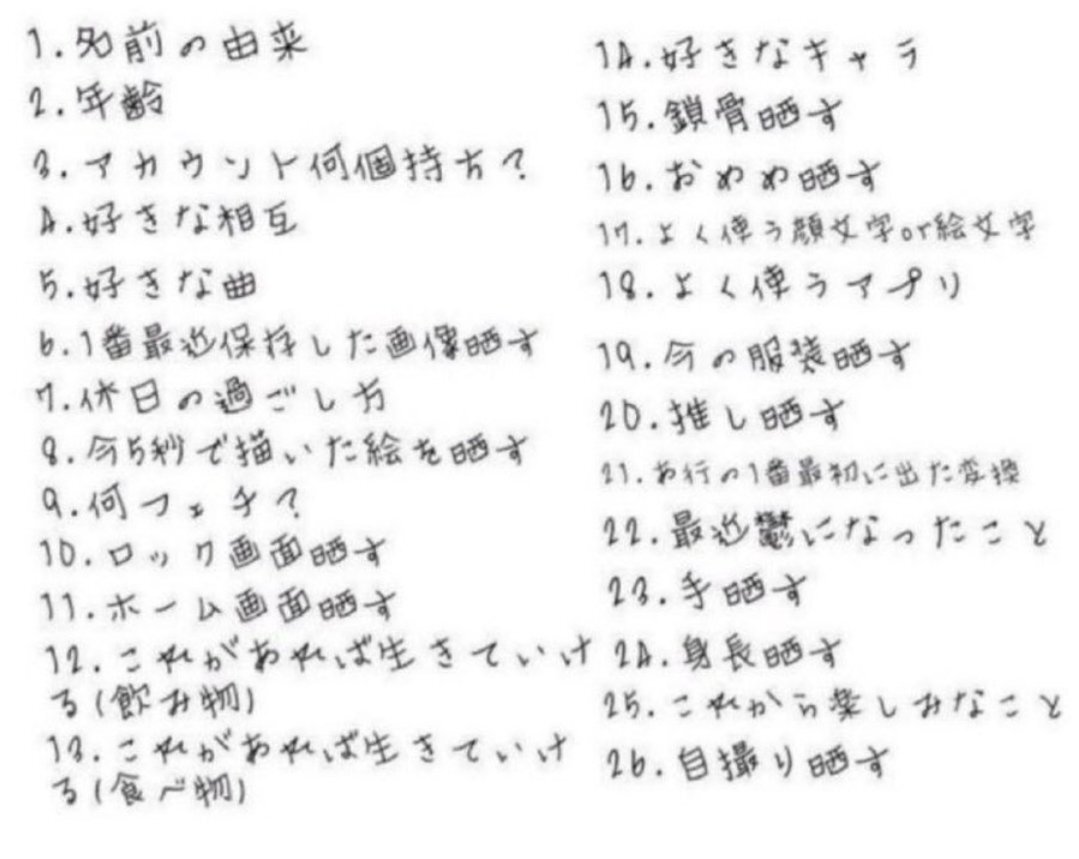 1.名前の由来
2.年齢
3.アカウント何個持ち?
4.好きな相互
5.好きな曲
6.1番最近保存した画像晒す
7.休日の過ごし方
8.今5秒で描いた絵を晒す
9.何フェチ?
10.ロック画面晒す
11.ホーム画面晒す
12.これがあれば生きていけ
る(飲み物)
13.これがあれば生きていけ
る(食べ物)
14.好きなキャラ
15.鎖骨晒す
16.おめめ晒す
17.よく使う顔文字or絵文字
18.よく使うアプリ
19.今の服装晒す
20.推し晒す
21.あ行の1番最初に出た変換
22.最近鬱になったこと
23.手晒す
24.身長晒す
25.これから楽しみなこと
26.自撮り晒す